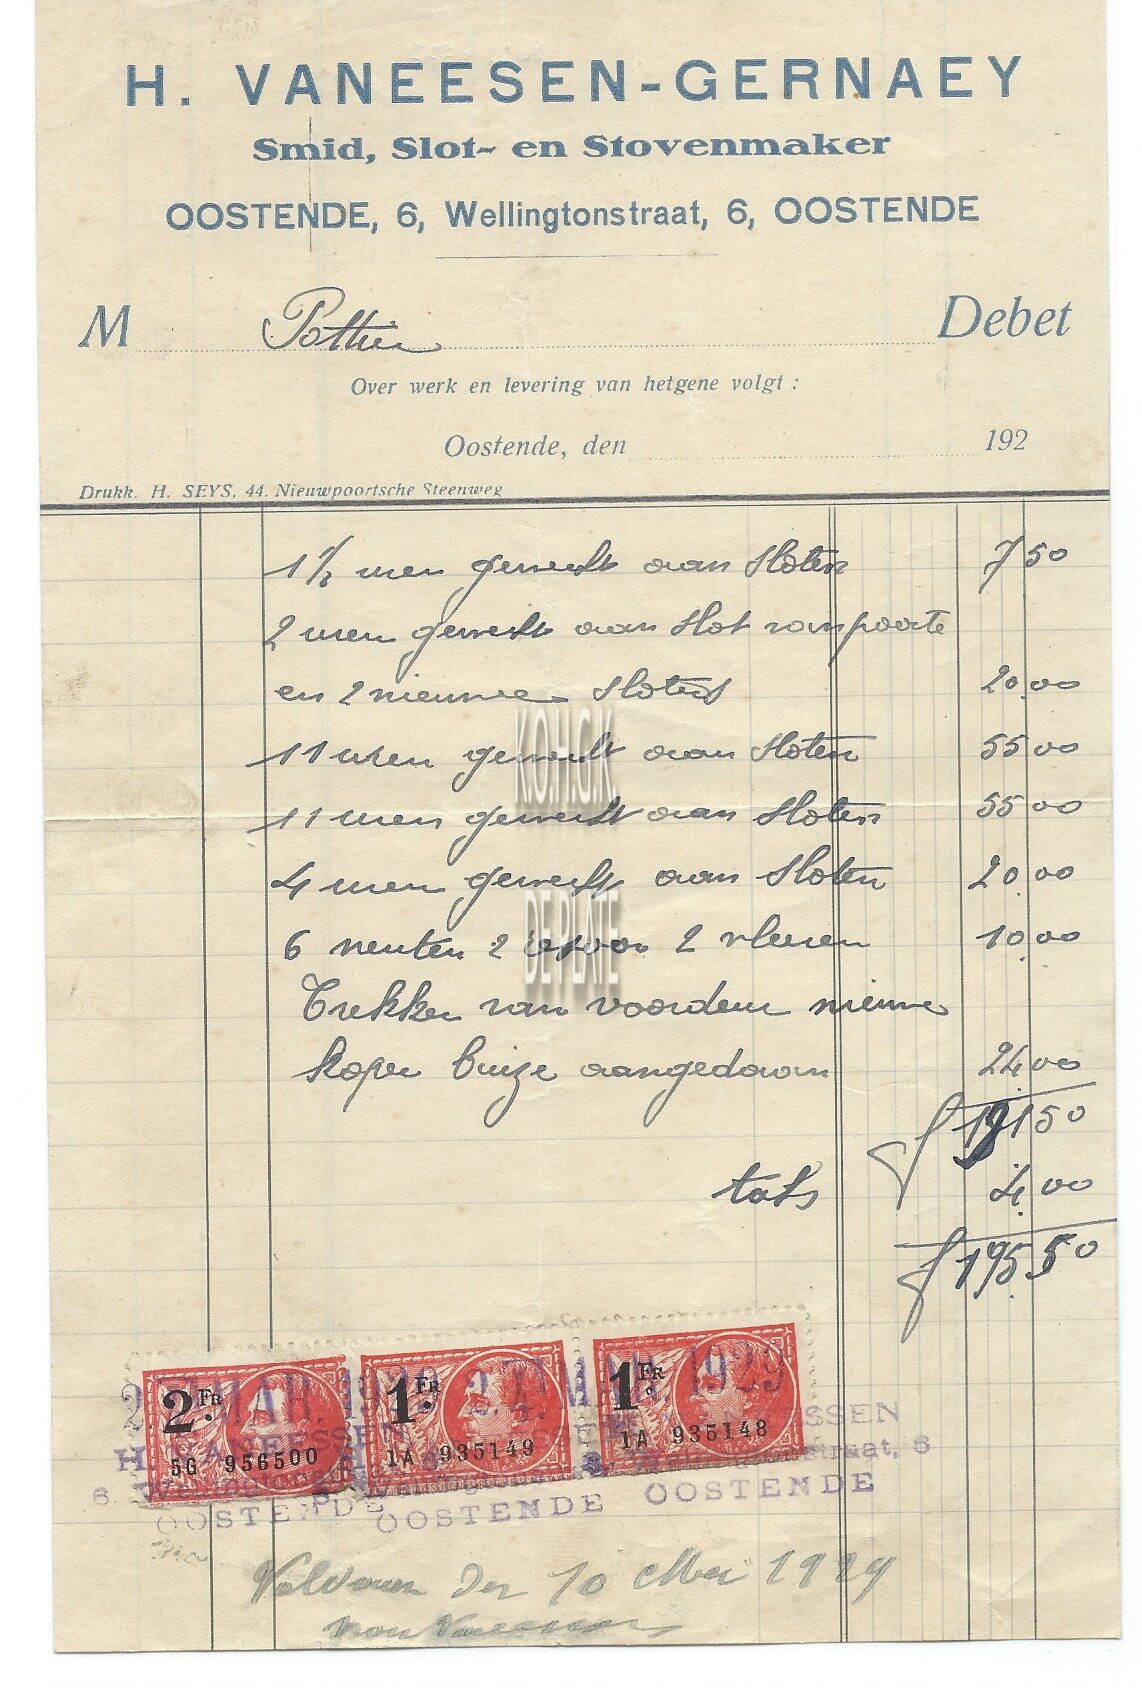 H. VANEESEN-GERNAEY
Smid, Slot- en Stovenmaker
OOSTENDE, 6, Wellingtonstraat, 6, OOSTENDE
M Pottier Debet
Over werk en levering van hetgene volgt :
Oostende, den 192
Drukk. H. SEYS, 44, Nieuwpoortsche Steenweg
1 1/2 uren gewerkt aan Sloten 7 50
2 uren gewerkt aan Slot van poorte
en 2 nieuwe Slotels 20.00
11 uren gewerkt aan Sloten 55 00
11 uren gewerkt aan Sloten 55 00
4 uren gewerkt aan Sloten 20.00
6 2 voor 2 10.00
Trekker van voordeur nieuwe
koper buize aangedaan 24.00
f 191 50
taks 4.00
f 195.50
K.O.H.G.K.
DE PLATE
2 FR. 5G 956500
1 FR. 1A 935149
1 FR. 1A 935148
MAR. 1929
H. VANEESSEN
6. Wellingtonstraat, 6
OOSTENDE
OOSTENDE
OOSTENDE
Voldaan Den 10 Mei 1929